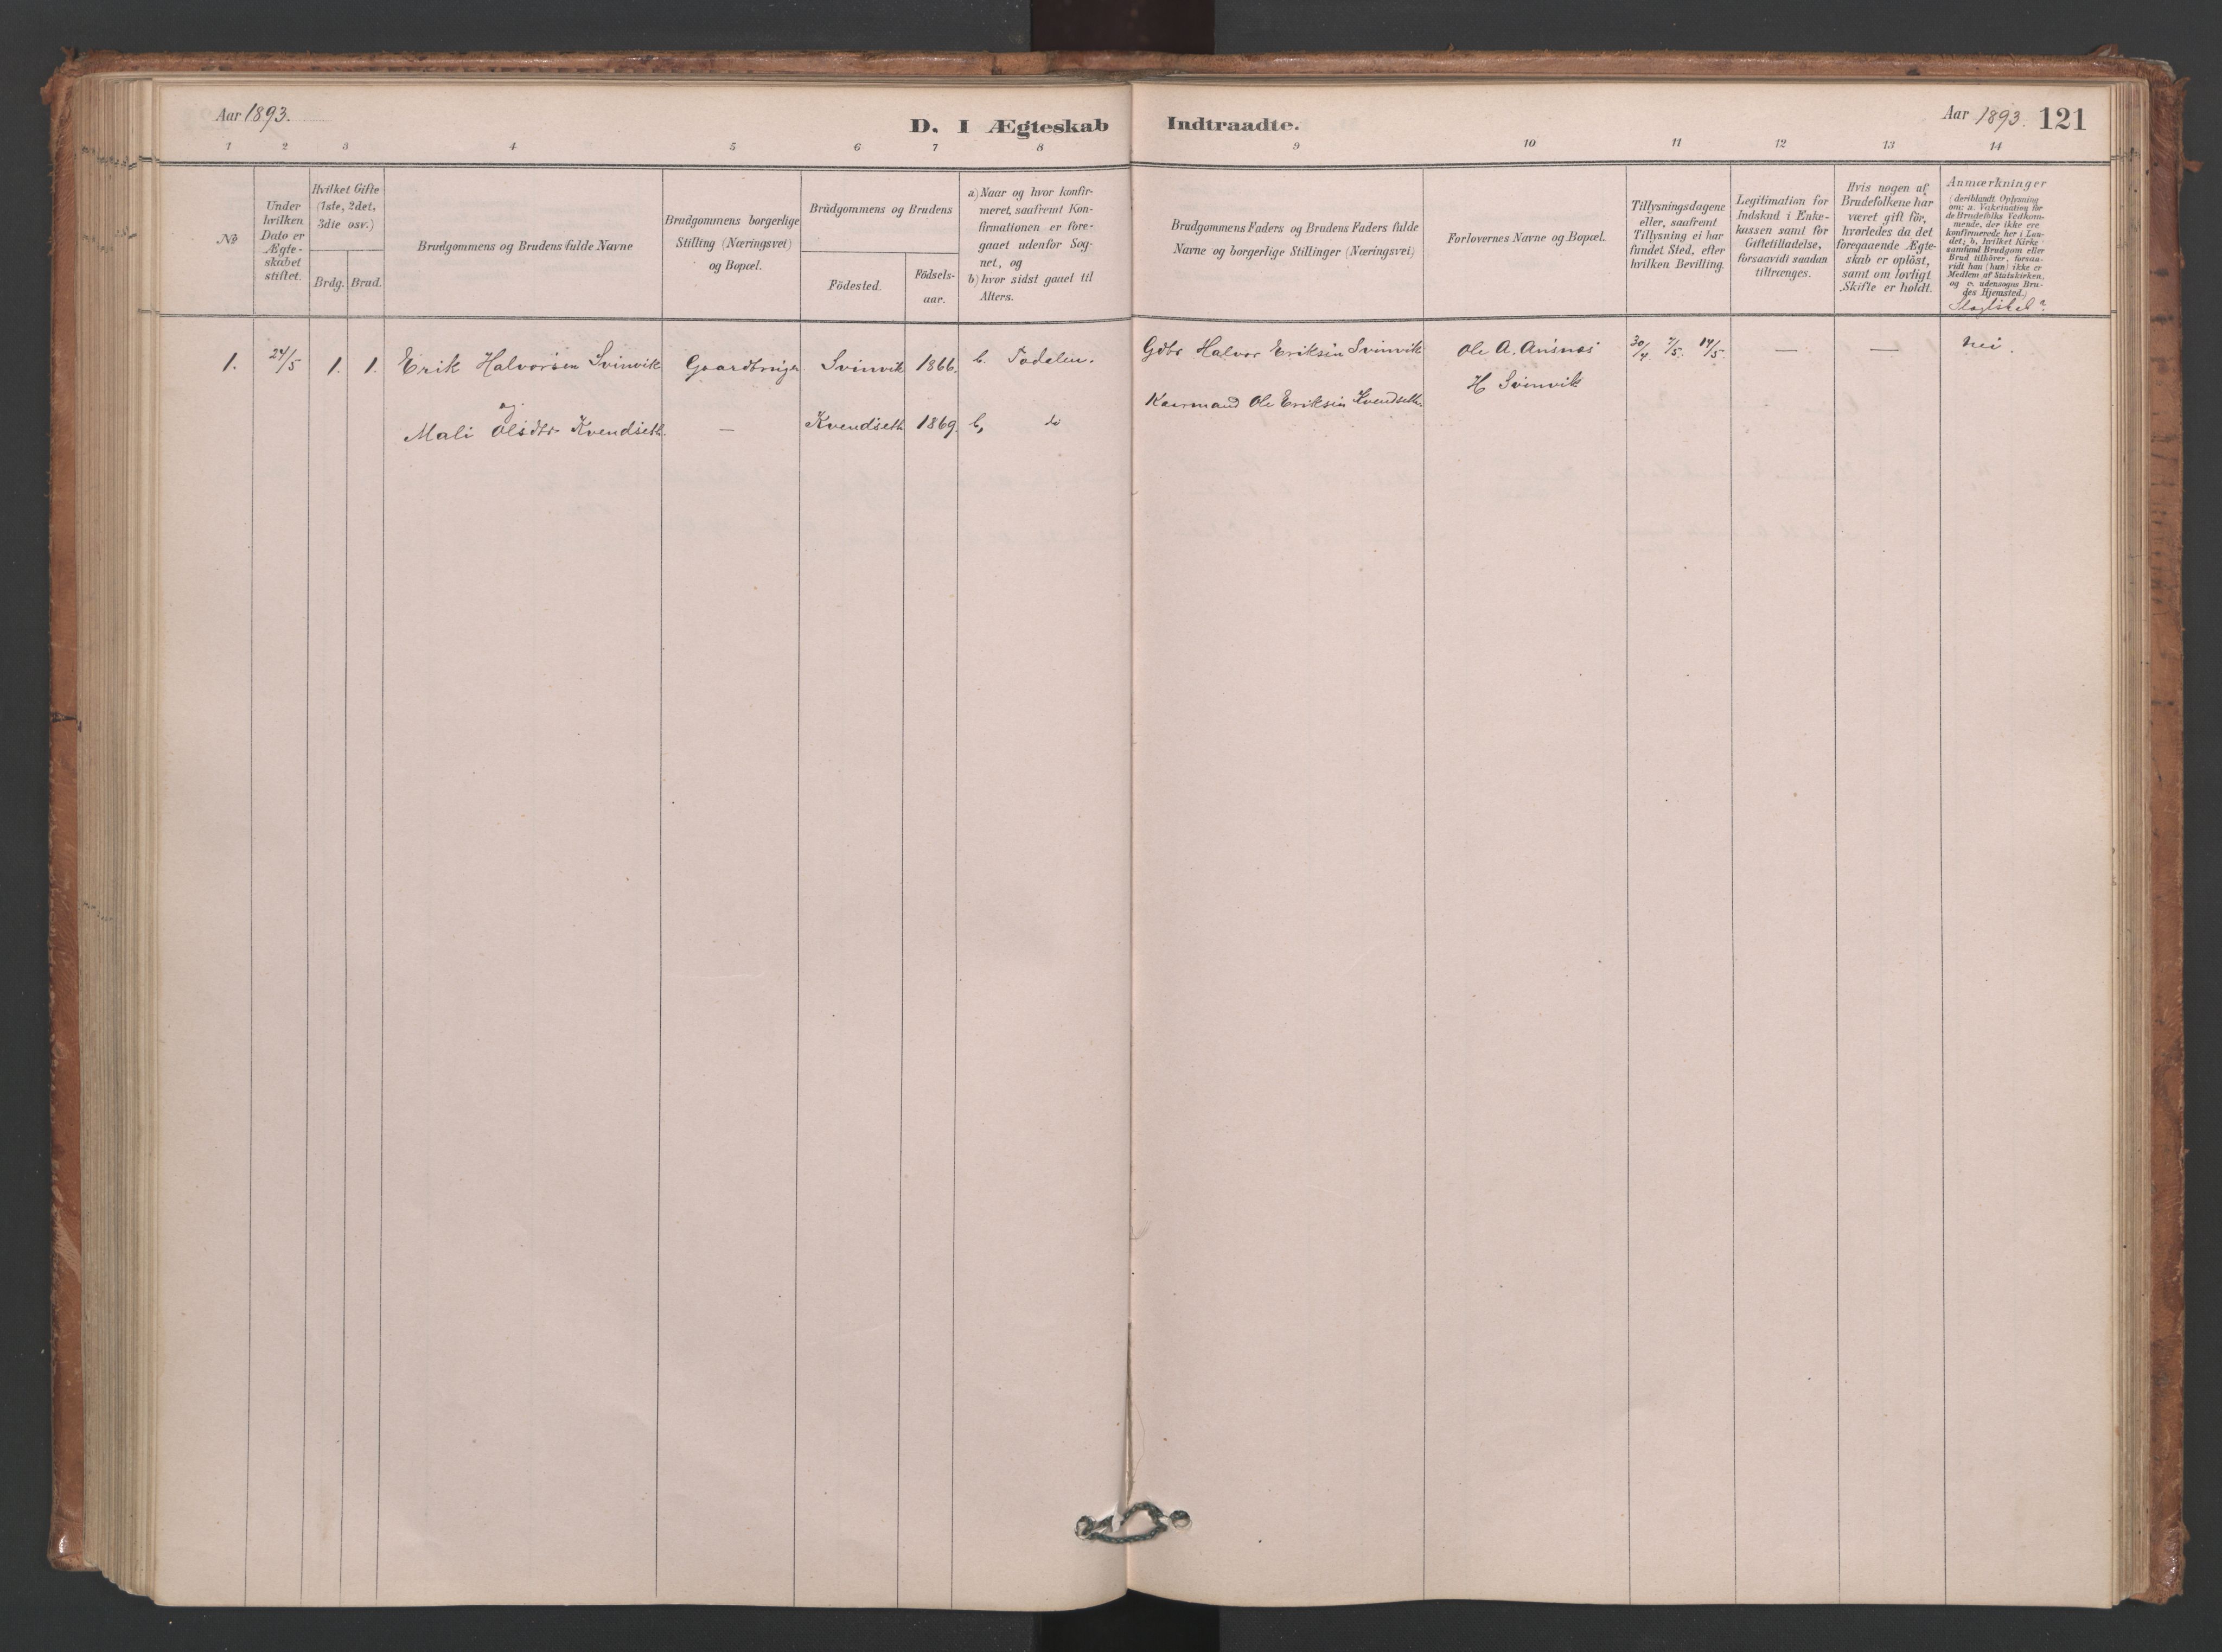 Aar 1893.
D. I Ægteskab Indtraadte.
Aar 1893. 121
1 2 3 4 5 6 7 8 9 10 11 12 13 14
No
Under
hvilken
Dato er
Ægte-
skabet
stiftet.
Hvilket Gifte
(1ste, 2det,
3die osv.)
Brdg. Brud.
Brudgommens og Brudens fulde Navne
Brudgommens borgerlige
Stilling (Næringsvei)
og Bopæl.
Brudgommens og Brudens
Födested.
Födsels-
aar.
a) Naar og hvor konfir-
meret, saafremt Kon-
firmationen er fore-
gaaet udenfor Sog-
net, og
b) hvor sidst gaaet til
Alters.
Brudgommens Faders og Brudens Faders fulde
Navne og borgerlige Stillinger (Næringsvei)
Forlovernes Navne og Bopæl.
Tillysningsdagene
eller, saafremt
Tillysning ei har
fundet Sted, efter
hvilken Bevilling.
Legitimation for
Indskud i Enke-
kassen samt for
Giftetilladelse,
forsaavidt saadan
tiltrænges.
Hvis nogen af
Brudefolkene har
været gift för,
hvorledes da det
foregaaende Ægte-
skab er oplöst,
samt om lovligt
Skifte er holdt.
Anmærkninger
(deriblandt Oplysning
om: a. Vakcination for
de Brudefolks Vedkom-
mende, der ikke ere
konfirmerede her i Lan-
det; b. hvilket Kirke-
samfund Brudgom eller
Brud tilhörer, forsaa-
vidt han (hun) ikke er
Medlem af Statskirken,
og c. udensogns Bru-
des Hjemsted.)
Slægtskab?
1. 24/5 1. 1. Erik Halvorsen Svinvik Gaardbruger Svinvik 1866. b. Todalen. Gdbr Halvor Eriksen Svinvik Ole A. Ansnæs 30/4 7/5. 14/5. — — Nei.
H Svinvik
Kaarmand Ole Eriksen Kvendseth
og
Mali Olsdtr Kvendseth. — Kvendseth 1869. b, do